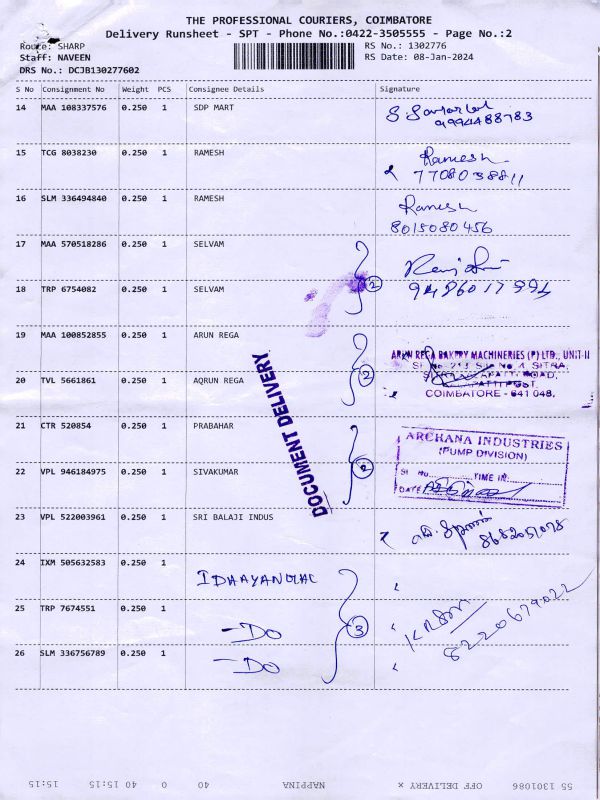 THE PROFESSIONAL COURIERS, COIMBATORE
Delivery Runsheet - SPT - Phone No.:0422-3505555 - Page No.:2
Route: SHARP
RS No.: 1302776
Staff: NAVEEN
RS Date: 08-Jan-2024
DRS No.: DCJB130277602
S No Consignment No Weight PCS Consignee Details Signature
14 MAA 108337576 0.250 1 SDP MART
9994488783
15 TCG 8038230 0.250 1 RAMESH Ramesh
7708038811
16 SLM 336494840 0.250 1 RAMESH Ramesh
8015080456
17 MAA 570518286 0.250 1 SELVAM
18 TRP 6754082 0.250 1 SELVAM 2
19 MAA 100852855 0.250 1 ARUN REGA
ARUN REGA BAKERY MACHINERIES (P) LTD., UNIT-II
20 TVL 5661861 0.250 1 AQRUN REGA 2
COIMBATORE - 641 048.
DOCUMENT DELIVERY
21 CTR 520854 0.250 1 PRABAHAR
ARCHANA INDUSTRIES
(PUMP DIVISION)
22 VPL 946184975 0.250 1 SIVAKUMAR 2
Sl No. TIME IN
DATE
23 VPL 522003961 0.250 1 SRI BALAJI INDUS
8682051078
24 IXM 505632583 0.250 1 IDAAYANGLAL
25 TRP 7674551 0.250 1 -DO 3
8220679022
26 SLM 336756789 0.250 1 -DO
55 1301086 OFF DELIVERY x NAPPINA 40 0 40 15:15 15:15